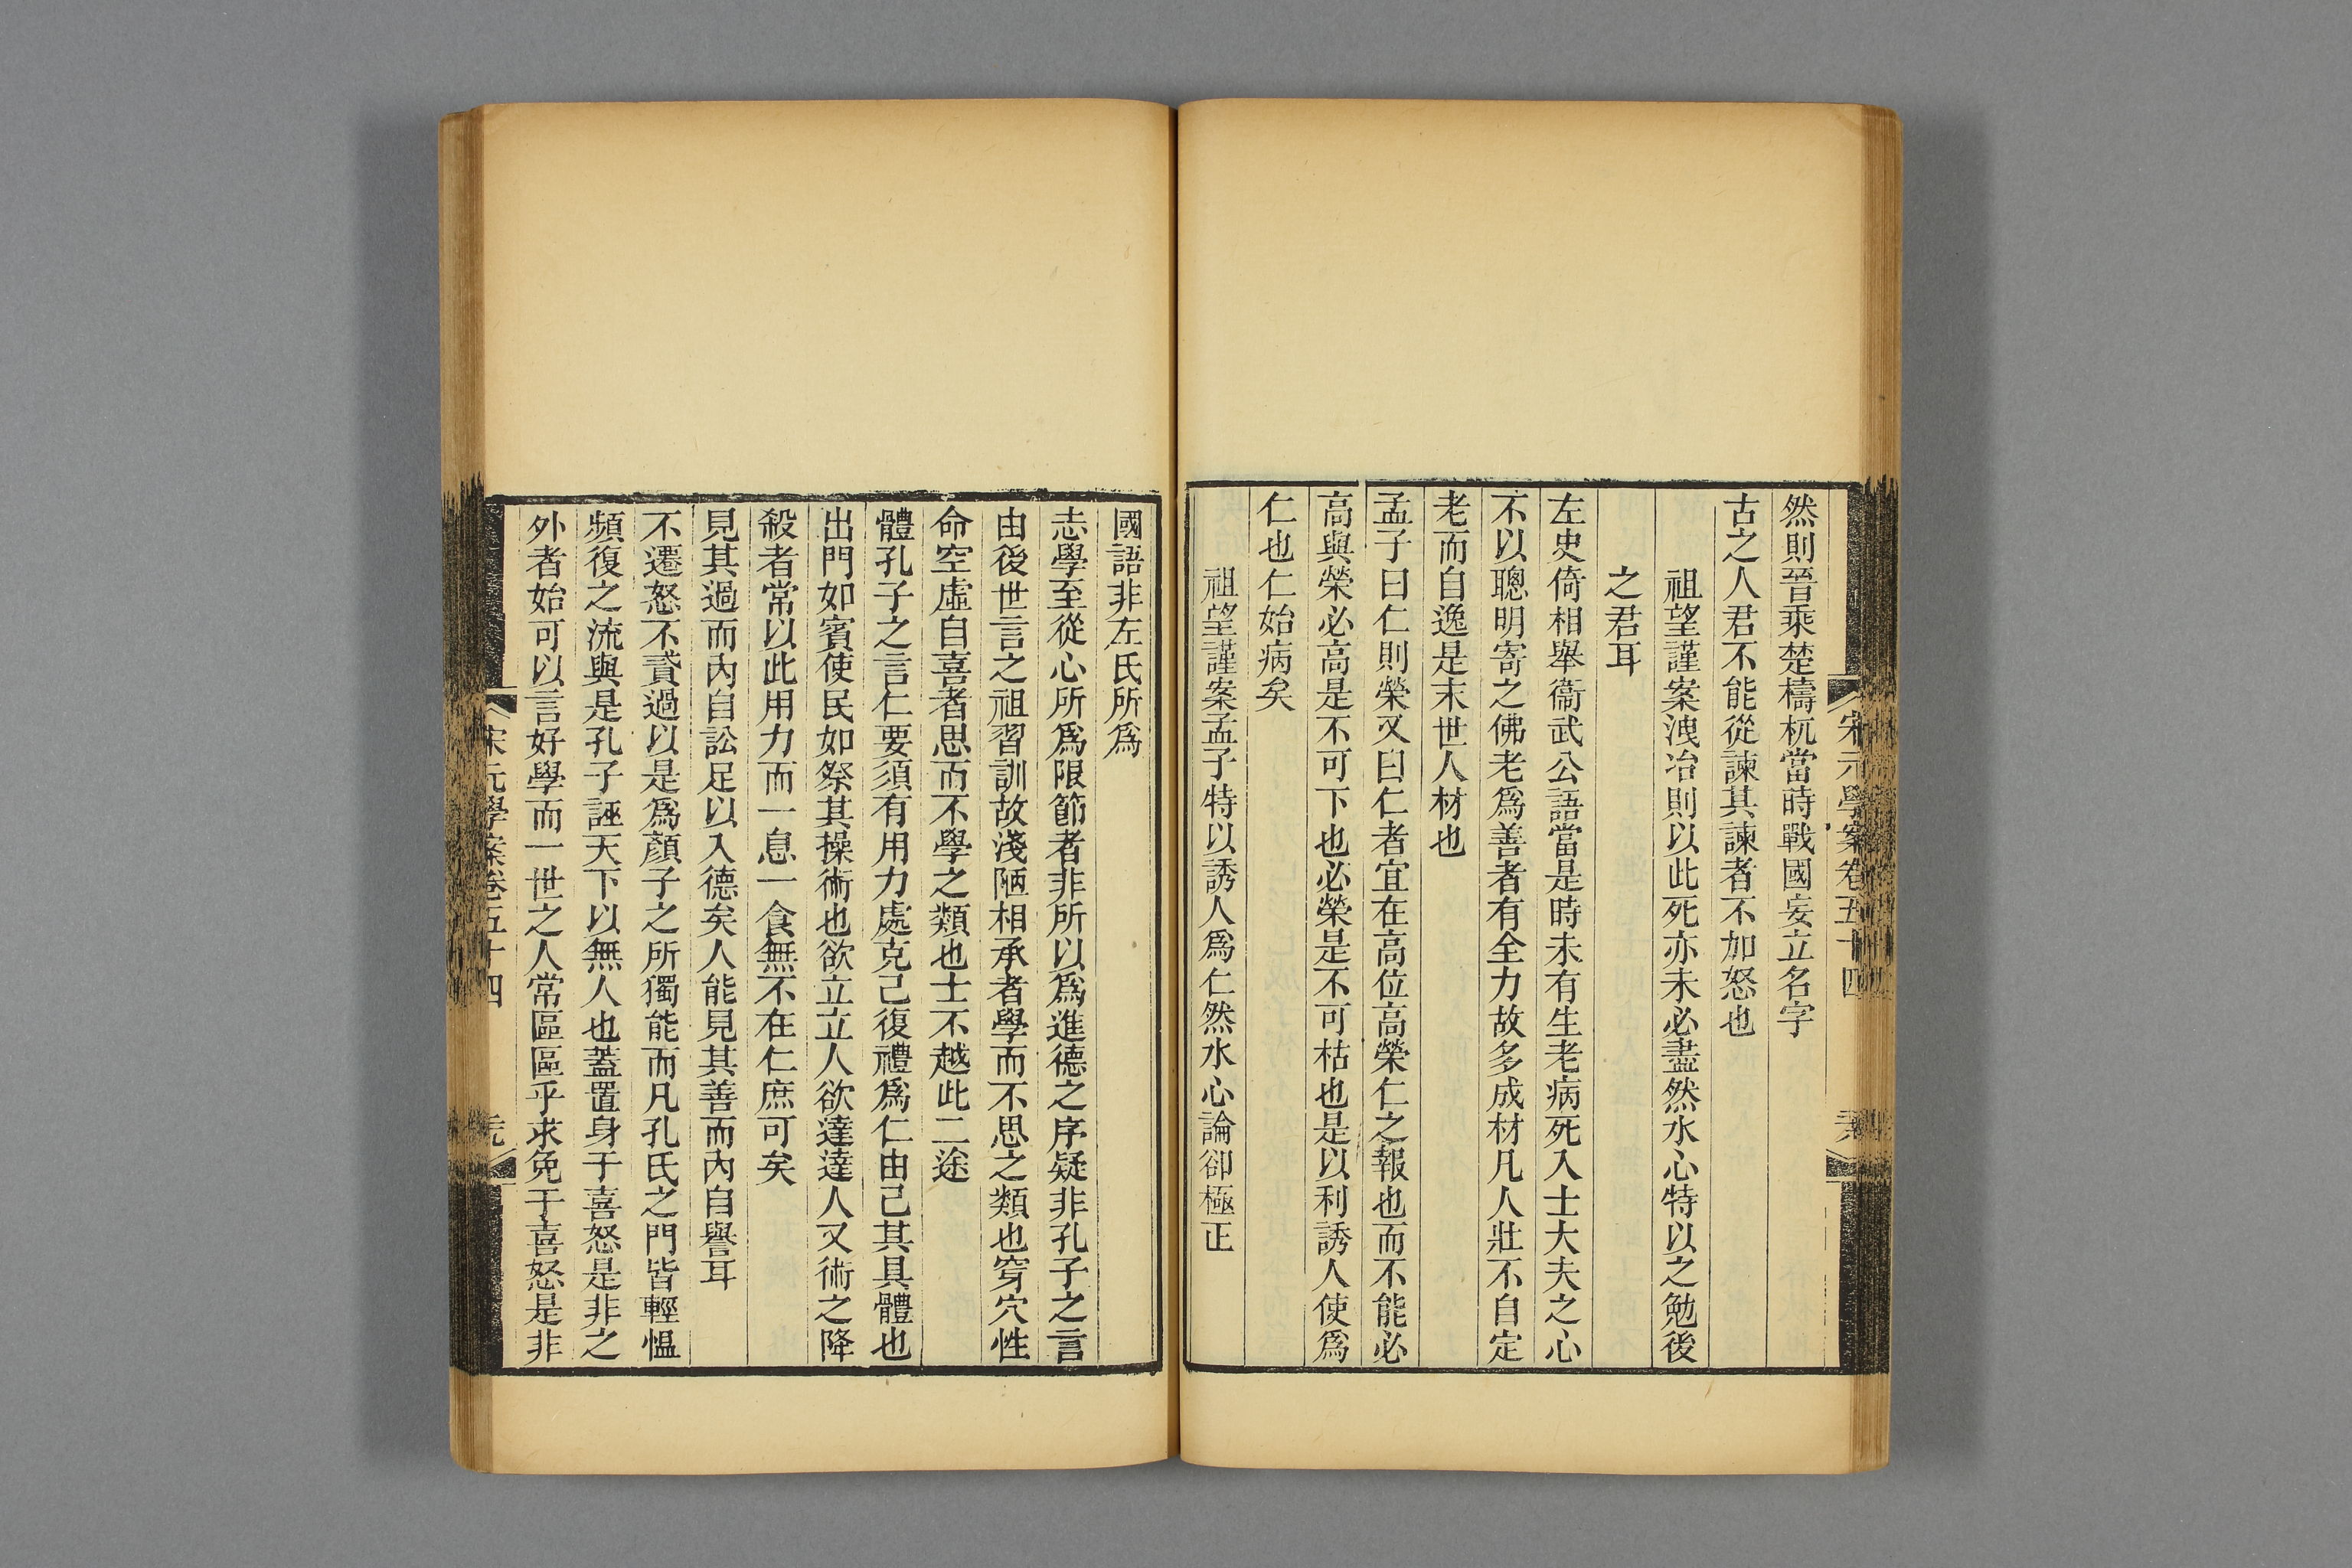 宋元學案卷五十四
然則晉乘楚檮杌當時戰國妄立名字
古之人君不能從諫其諫者不加怒也
祖望謹案洩冶則以此死亦未必盡然水心特以之勉後
之君耳
左史倚相舉衞武公語當是時未有生老病死入士大夫之心
不以聰明寄之佛老爲善者有全力故多成材凡人壯不自定
老而自逸是末世人材也
孟子曰仁則榮又曰仁者宜在高位高榮仁之報也而不能必
高與榮必高是不可下也必榮是不可枯也是以利誘人使爲
仁也仁始病矣
祖望謹案孟子特以誘人爲仁然水心論卻極正
國語非左氏所爲
志學至從心所爲限節者非所以爲進德之序疑非孔子之言
由後世言之祖習訓故淺陋相承者學而不思之類也穿穴性
命空虛自喜者思而不學之類也士不越此二途
體孔子之言仁要須有用力處克己復禮爲仁由己其具體也
出門如賓使民如祭其操術也欲立立人欲達達人又術之降
殺者常以此用力而一息一食無不在仁庶可矣
見其過而內自訟足以入德矣人能見其善而內自譽耳
不遷怒不貳過以是爲顏子之所獨能而凡孔氏之門皆輕愠
頻復之流與是孔子誣天下以無人也蓋置身于喜怒是非之
外者始可以言好學而一世之人常區區乎求免于喜怒是非
宋元學案卷五十四